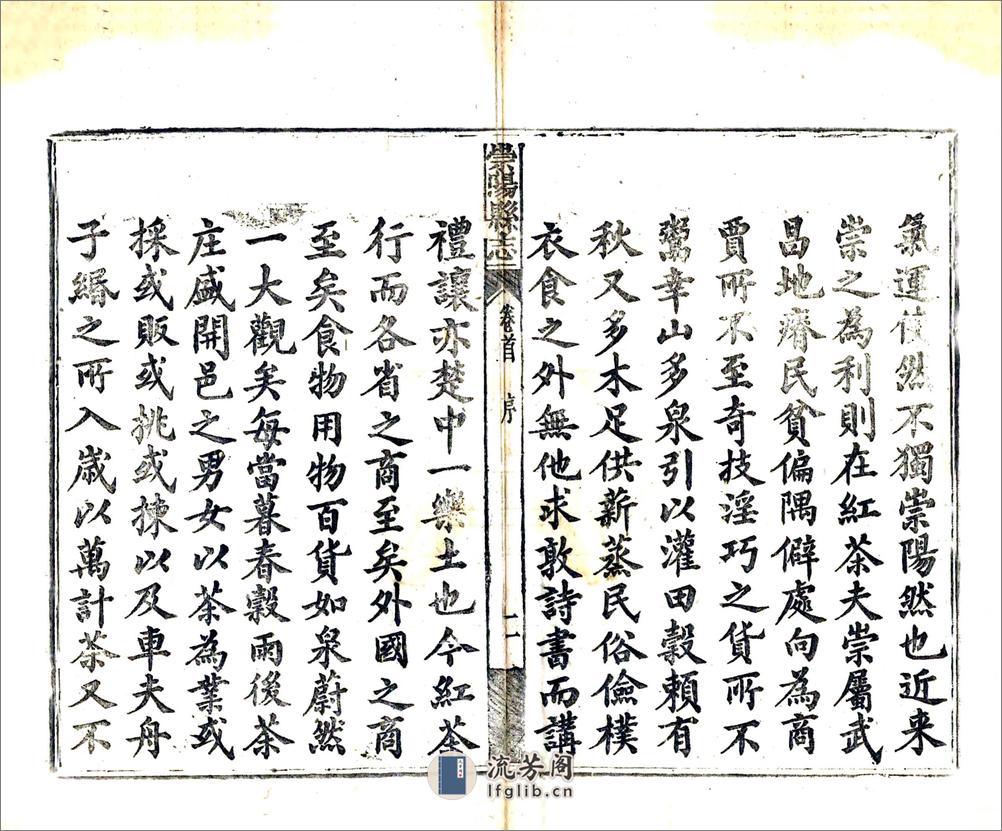 氣運使然不獨崇陽然也近来
崇之為利則在紅茶夫崇屬武
昌地瘠民貧偏隅僻處向為商
賈所不至奇技淫巧之貨所不
鬻幸山多泉引以灌田穀賴有
秋又多木足供薪蒸民俗儉樸
衣食之外無他求敦詩書而講
崇陽縣志
卷首
序
二
禮讓亦楚中一樂土也今紅茶
行而各省之商至矣外國之商
至矣食物用物百貨如泉蔚然
一大觀矣每當暮春穀雨後茶
庄盛開邑之男女以茶為業或
採或販或挑或揀以及車夫舟
子緡之所入歲以萬計茶又不
流芳阁
lfglib.cn